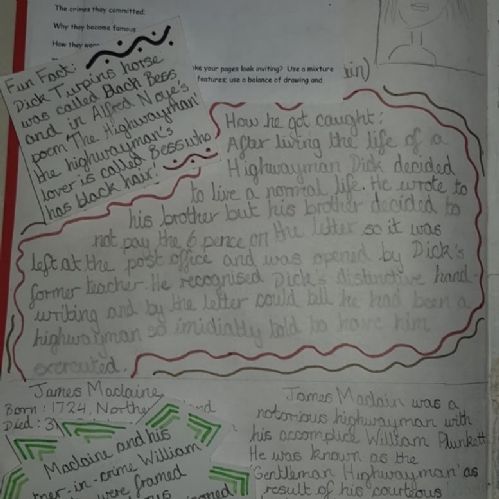 The crimes they committed:
Why they became famous
How they were
ke your pages look inviting? Use a mixture
features; use a balance of drawing and
Fun Fact:
Dick Turpins horse
was called Black Bess
and in Alfred Noye's
poem 'The Highwayman'
the highwayman's
lover is called Bess who
has black hair!
in)
How he got caught:
After living the life of a
Highwayman Dick decided
to live a normal life. He wrote to
his brother but his brother decided to
not pay the 6 pence on the letter so it was
left at the post office and was opened by Dick's
former teacher. He recognised Dick's distinctive hand-
writing and by the letter could tell he had been a
highwayman so imidiatly told to have him
excecuted.
James Maclaine
Born: 1724, Northe land
Died: 3
Maclaine and his
ner-in-crime William
were framed
James Maclain was a
notorious highwayman with
his accomplice William Plunkett
He was known as the
'Gentleman Highwayman' as
result of his courteous